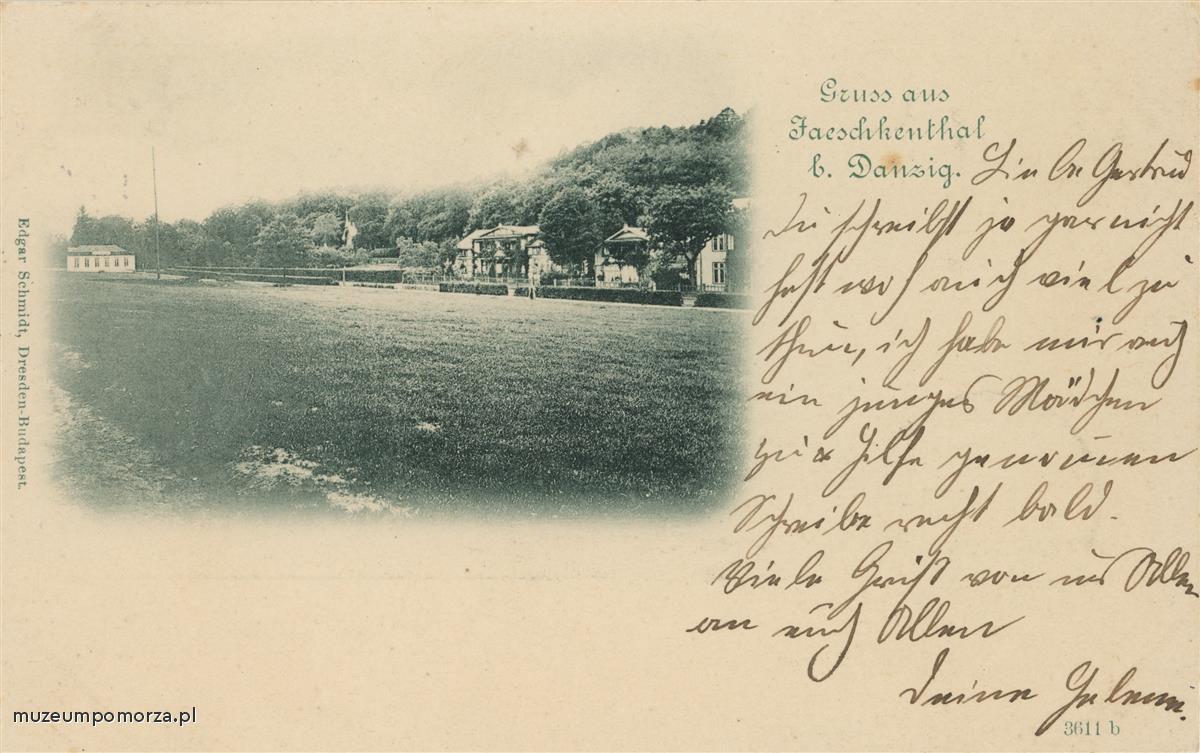 Gruss aus
Jaeschkenthal
b. Danzig.
Liebe Gertrud
Du schreibst ja gar nicht
hast wohl auch viel zu
thun, ich habe mir auch
ein junges Mädchen
zur Hilfe genommen
Schreibe recht bald.
Viele Grüße von uns Allen
an euch Allen
Deine Helene.
3611 b
Edgar Schmidt, Dresden-Budapest.
muzeumpomorza.pl